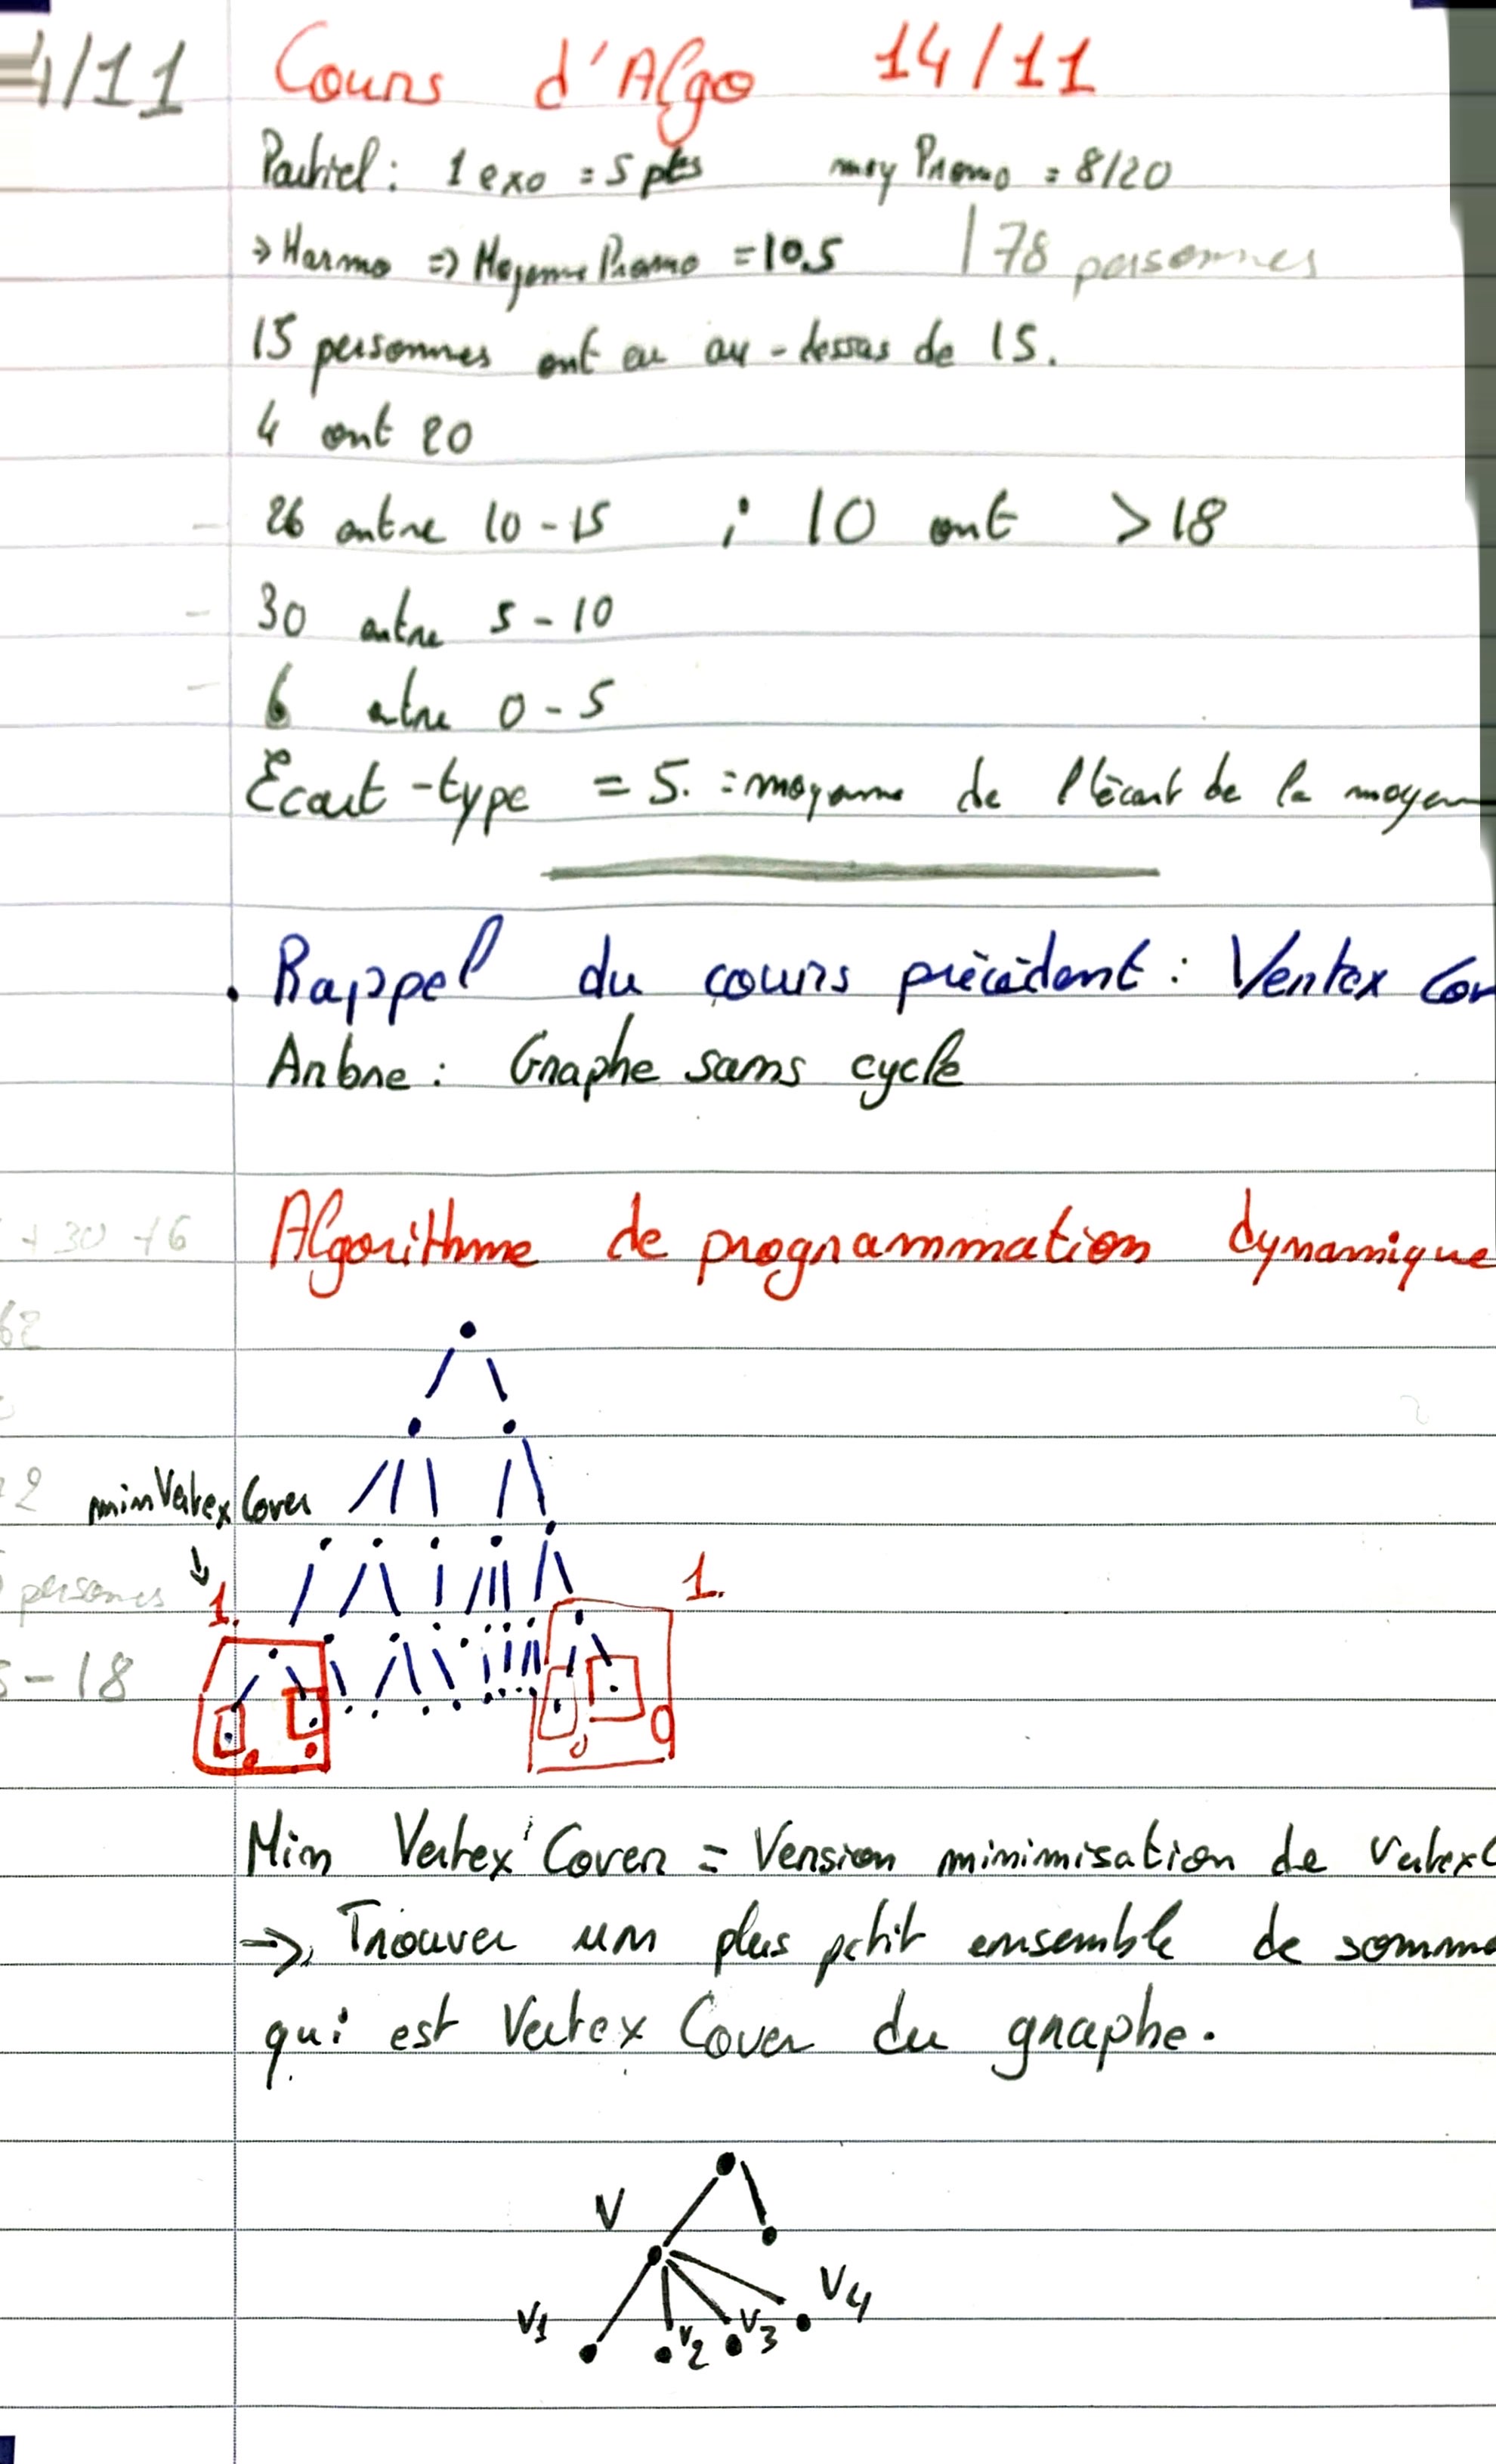 4/11 Cours d'Algo 14/11
Partiel : 1 exo = 5 pts moy Promo = 8/20
→ Harmo => Moyenne Promo = 10.5 | 78 personnes
15 personnes ont eu au-dessus de 15.
4 ont 20
- 26 entre 10-15 ; 10 ont >18
- 30 entre 5-10
- 6 entre 0-5
Ecart-type = 5. = moyenne de l'écart de la moyen
. Rappel du cours précédent : Vertex Cov
Arbre : Graphe sans cycle
+30 +6 Algorithme de programmation dynamique
62
2 min Vertex Cover
personnes
1. 1.
- 18
0 0
Min Vertex Cover = Version minimisation de VertexC
→ Trouver un plus petit ensemble de somme
qui est Vertex Cover du graphe.
V
V4
V1 V2 V3